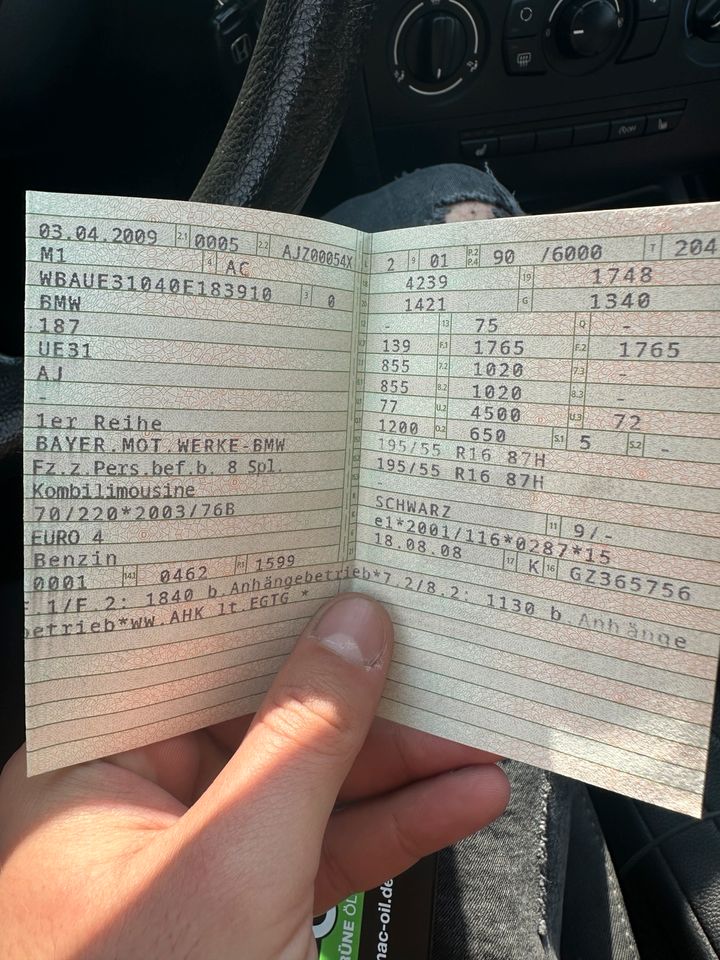 03.04.2009 2.1 0005 2.2 AJZ00054X
M1 4 AC
WBAUE31040E183910 3 0
BMW
187
UE31
AJ
-
1er Reihe
BAYER.MOT.WERKE-BMW
Fz.z.Pers.bef.b. 8 Spl.
Kombilimousine
70/220*2003/76B
EURO 4
Benzin
0001 14.1 0462 P.1 1599
1/F.2: 1840 b.Anhängebetrieb*7.2/8.2: 1130 b.Anhänge
betrieb*WW.AHK lt.EGTG *
L 2 9 01 P.2 P.4 90 /6000 T 204
4239 19 1748
1421 G 1340
- 13 75 Q -
139 F.1 1765 F.2 1765
855 7.2 1020 7.3 -
855 8.2 1020 8.3 -
77 U.2 4500 U.3 72
1200 O.2 650 S.1 5 S.2 -
195/55 R16 87H
195/55 R16 87H
-
SCHWARZ 11 9/-
e1*2001/116*0287*15
18.08.08 17 K 16 GZ365756
ÜNE ÖL
mac-oil.de